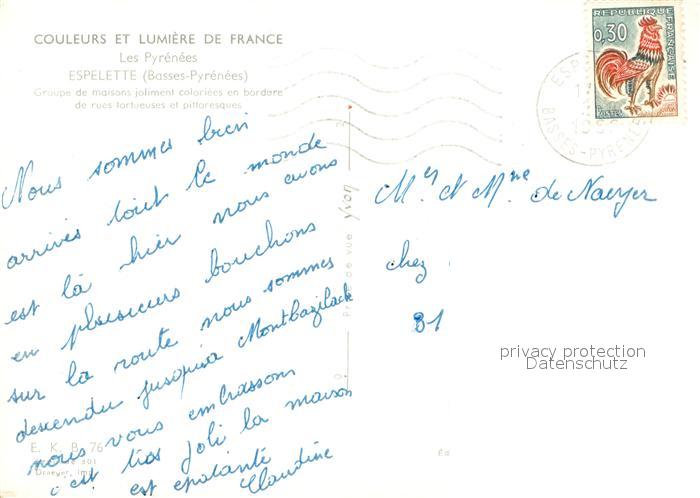 COULEURS ET LUMIÈRE DE FRANCE
Les Pyrénées
ESPELETTE (Basses-Pyrénées)
Groupe de maisons joliment coloriées en bordure
de rues tortueuses et pittoresques
Nous sommes bien
arrivés tout le monde
est là hier nous avons
eu plusieurs bouchons
sur la route nous sommes
descendu jusqu'à Montbazilack
nous vous embrassons
c'est très joli la maison
est epatante
Claudine
E. K. B. 76
301
Draeger, imp.
Prise de vue yvon
Éd
REPUBLIQUE FRANÇAISE
0,30
POSTES
BASSES-PYRENEES
Mr et Mme de Naeyer
chez
31
privacy protection
Datenschutz